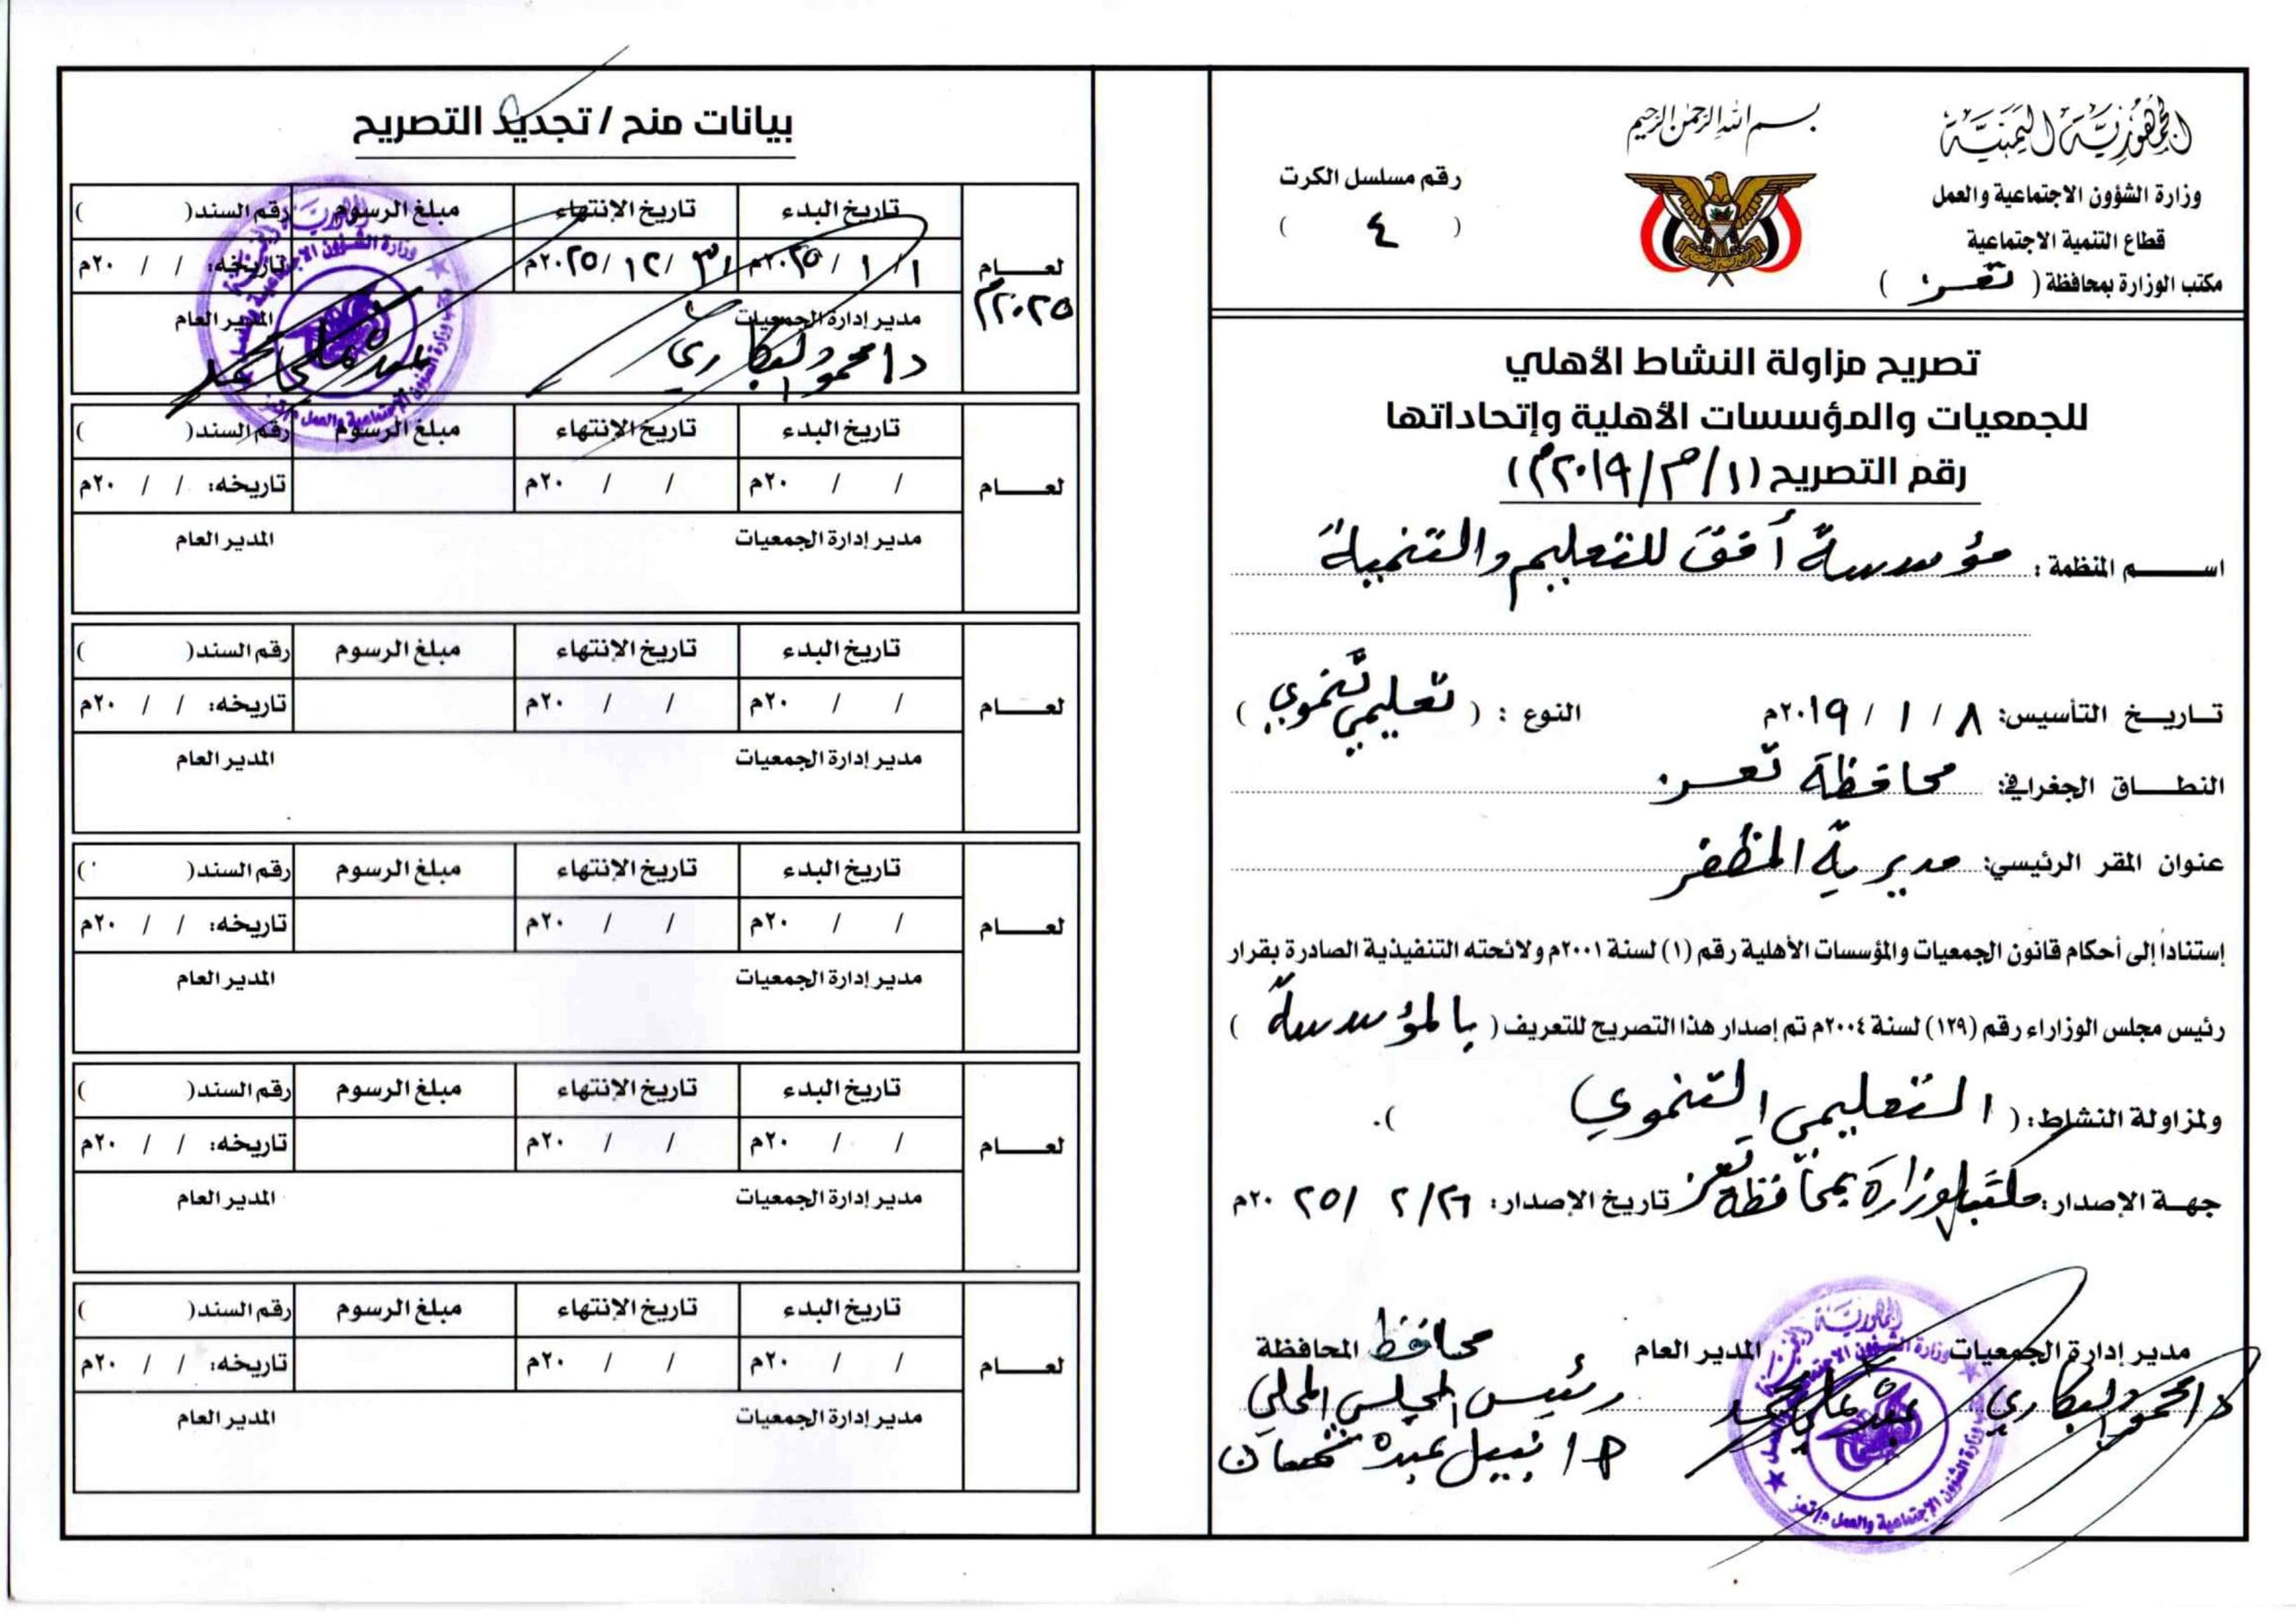 الجمهورية اليمنية
وزارة الشؤون الاجتماعية والعمل
قطاع التنمية الاجتماعية
مكتب الوزارة بمحافظة ( تعز )
بسم الله الرحمن الرحيم
رقم مسلسل الكرت
( ٤ )
تصريح مزاولة النشاط الأهلي
للجمعيات والمؤسسات الأهلية وإتحاداتها
رقم التصريح (١/م/٢٠١٩م)
اســـــم المنظمة : مؤسسة أفق للتعليم والتنمية
تـاريــخ التأسيس: ٨ / ١ / ٢٠١٩م النوع : ( تعليمي تنموي )
النطـــاق الجغرافي: محافظة تعز
عنوان المقر الرئيسي: مديرية المظفر
إستناداً إلى أحكام قانون الجمعيات والمؤسسات الأهلية رقم (١) لسنة ٢٠٠١م ولائحته التنفيذية الصادرة بقرار
رئيس مجلس الوزاراء رقم (١٢٩) لسنة ٢٠٠٤م تم إصدار هذا التصريح للتعريف ( بالمؤسسة )
ولمزاولة النشاط: ( التعليمي التنموي ).
جهـة الإصدار: مكتب الوزارة بمحافظة تعز تاريخ الإصدار: ٢٦/ ٢ /٢٠٢٥م
مدير إدارة الجمعيات المدير العام محافظ المحافظة
د/محمود البكاري
رئيس المجلس المحلي
أ/ نبيل عبده شمسان
الجمهورية اليمنية
وزارة الشؤون الاجتماعية والعمل
مكتب وزارة الشؤون الإجتماعية والعمل م/تعز
بيانات منح / تجديد التصريح
لعــــام ٢٠٢٥م
تاريخ البدء تاريخ الإنتهاء مبلغ الرسوم رقم السند( )
١ / ١ / ٢٠٢٥م ٣١ / ١٢ / ٢٠٢٥م تاريخه: / / ٢٠م
مدير إدارة الجمعيات المدير العام
د/محمود البكاري
الجمهورية اليمنية
وزارة الشؤون الاجتماعية والعمل
مكتب وزارة الشؤون الإجتماعية والعمل م/تعز
لعــــام
تاريخ البدء تاريخ الإنتهاء مبلغ الرسوم رقم السند( )
/ / ٢٠م / / ٢٠م تاريخه: / / ٢٠م
مدير إدارة الجمعيات المدير العام
لعــــام
تاريخ البدء تاريخ الإنتهاء مبلغ الرسوم رقم السند( )
/ / ٢٠م / / ٢٠م تاريخه: / / ٢٠م
مدير إدارة الجمعيات المدير العام
لعــــام
تاريخ البدء تاريخ الإنتهاء مبلغ الرسوم رقم السند( )
/ / ٢٠م / / ٢٠م تاريخه: / / ٢٠م
مدير إدارة الجمعيات المدير العام
لعــــام
تاريخ البدء تاريخ الإنتهاء مبلغ الرسوم رقم السند( )
/ / ٢٠م / / ٢٠م تاريخه: / / ٢٠م
مدير إدارة الجمعيات المدير العام
لعــــام
تاريخ البدء تاريخ الإنتهاء مبلغ الرسوم رقم السند( )
/ / ٢٠م / / ٢٠م تاريخه: / / ٢٠م
مدير إدارة الجمعيات المدير العام